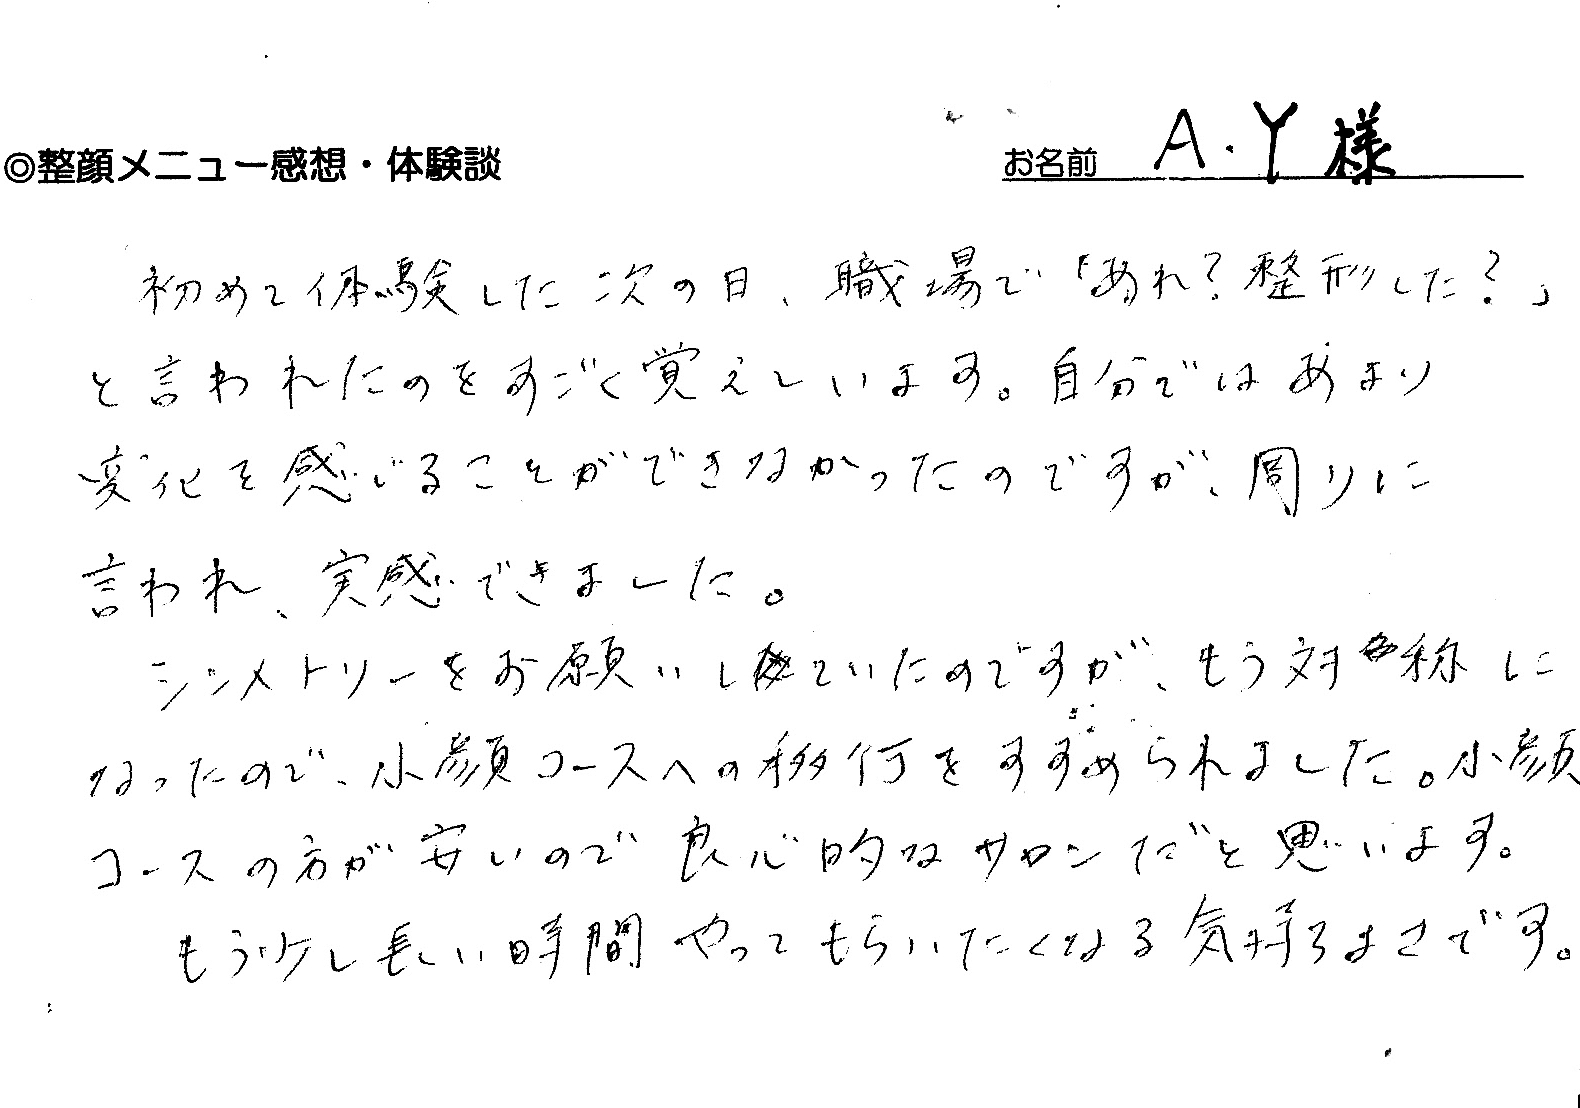 ◎整顔メニュー感想・体験談
お名前 A.Y様
初めて体験した次の日、職場で「あれ?整形した?」
と言われたのをすごく覚えています。自分ではあまり
変化を感じることができなかったのですが、周りに
言われ、実感できました。
シンメトリーをお願いしていたのですが、もう対称に
なったので、小顔コースへの移行をすすめられました。小顔
コースの方が安いので良心的なサロンだと思います。
もう少し長い時間やってもらいたくなる気持ちよさです。